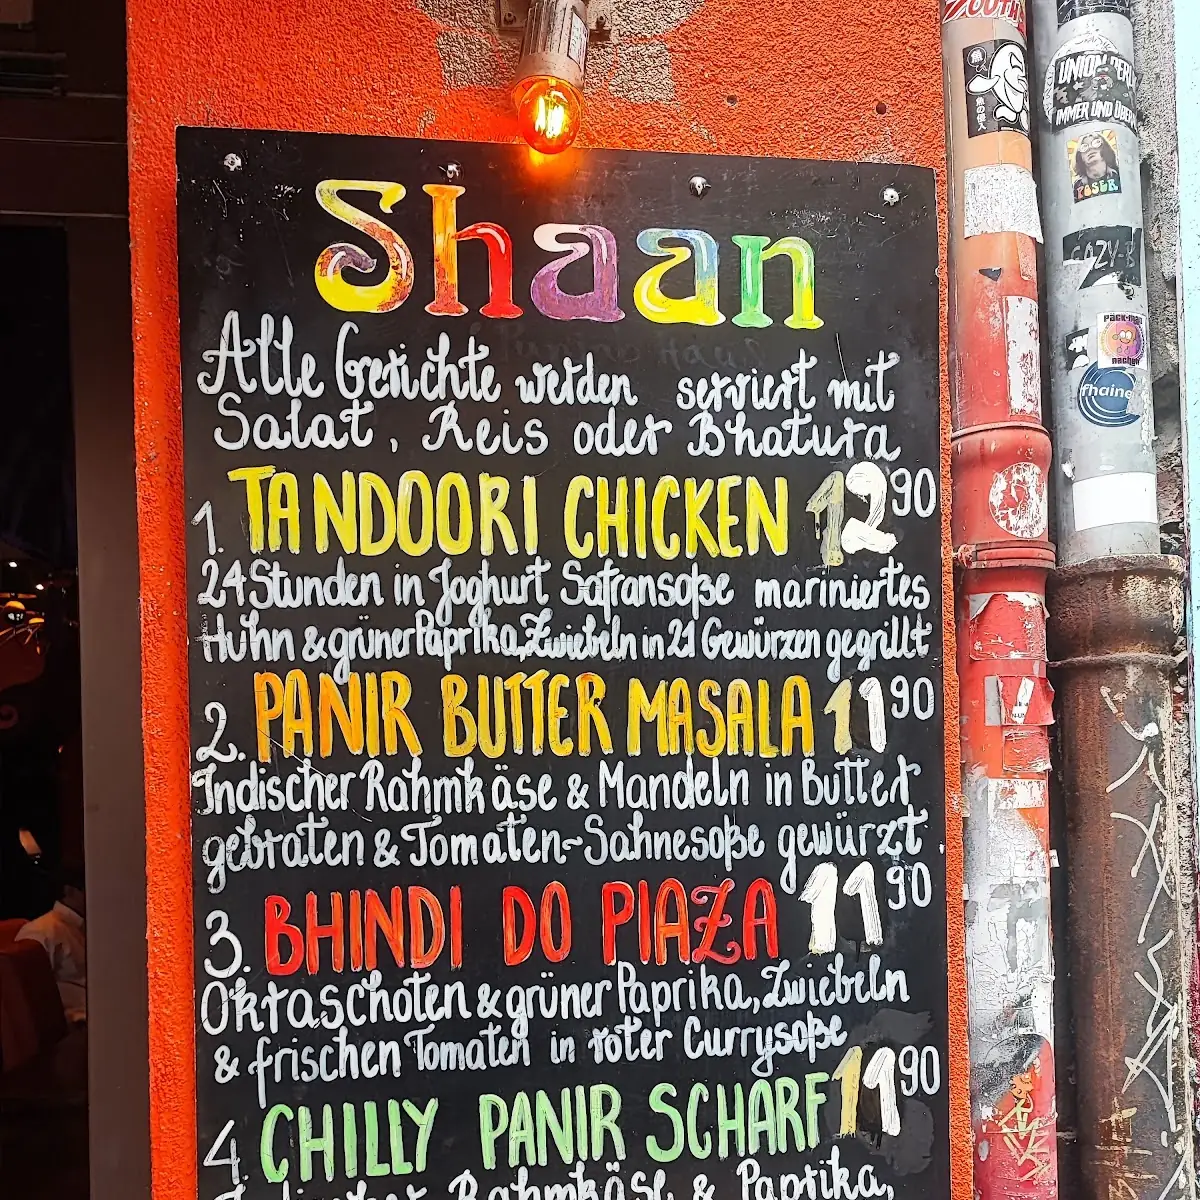 Shaan
Alle Gerichte werden serviert mit
Salat, Reis oder Bhatura
1. TANDOORI CHICKEN 12 90
24 Stunden in Joghurt Safransoße mariniertes
Huhn & grüner Paprika, Zwiebeln in 21 Gewürzen gegrillt
2. PANIR BUTTER MASALA 11 90
Indischer Rahmkäse & Mandeln in Butter
gebraten & Tomaten-Sahnesoße gewürzt.
3. BHINDI DO PIAZA 11 90
Oktraschoten & grüner Paprika, Zwiebeln
& frischen Tomaten in roter Currysoße
4 CHILLY PANIR SCHARF 11 90
Indischer Rahmkäse & Paprika,
UNION BERLIN
IMMER UND ÜBER
COZY-B
PACK-MAN
AACHEN
fhain